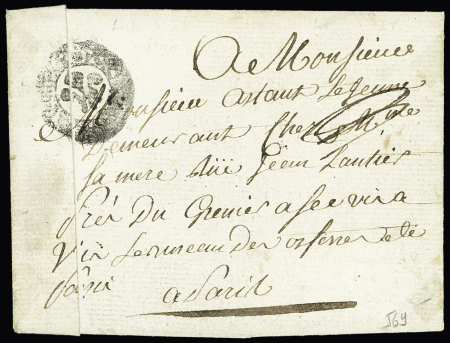 A Monsieur
Monsieur astaut Le Jeune
Demeurant Chez Mme
sa mere Rüe Jean Lantier
Près Du Grenier a sel vis a
vis Le Bureau des orfevres de
Paris
a Paris
569